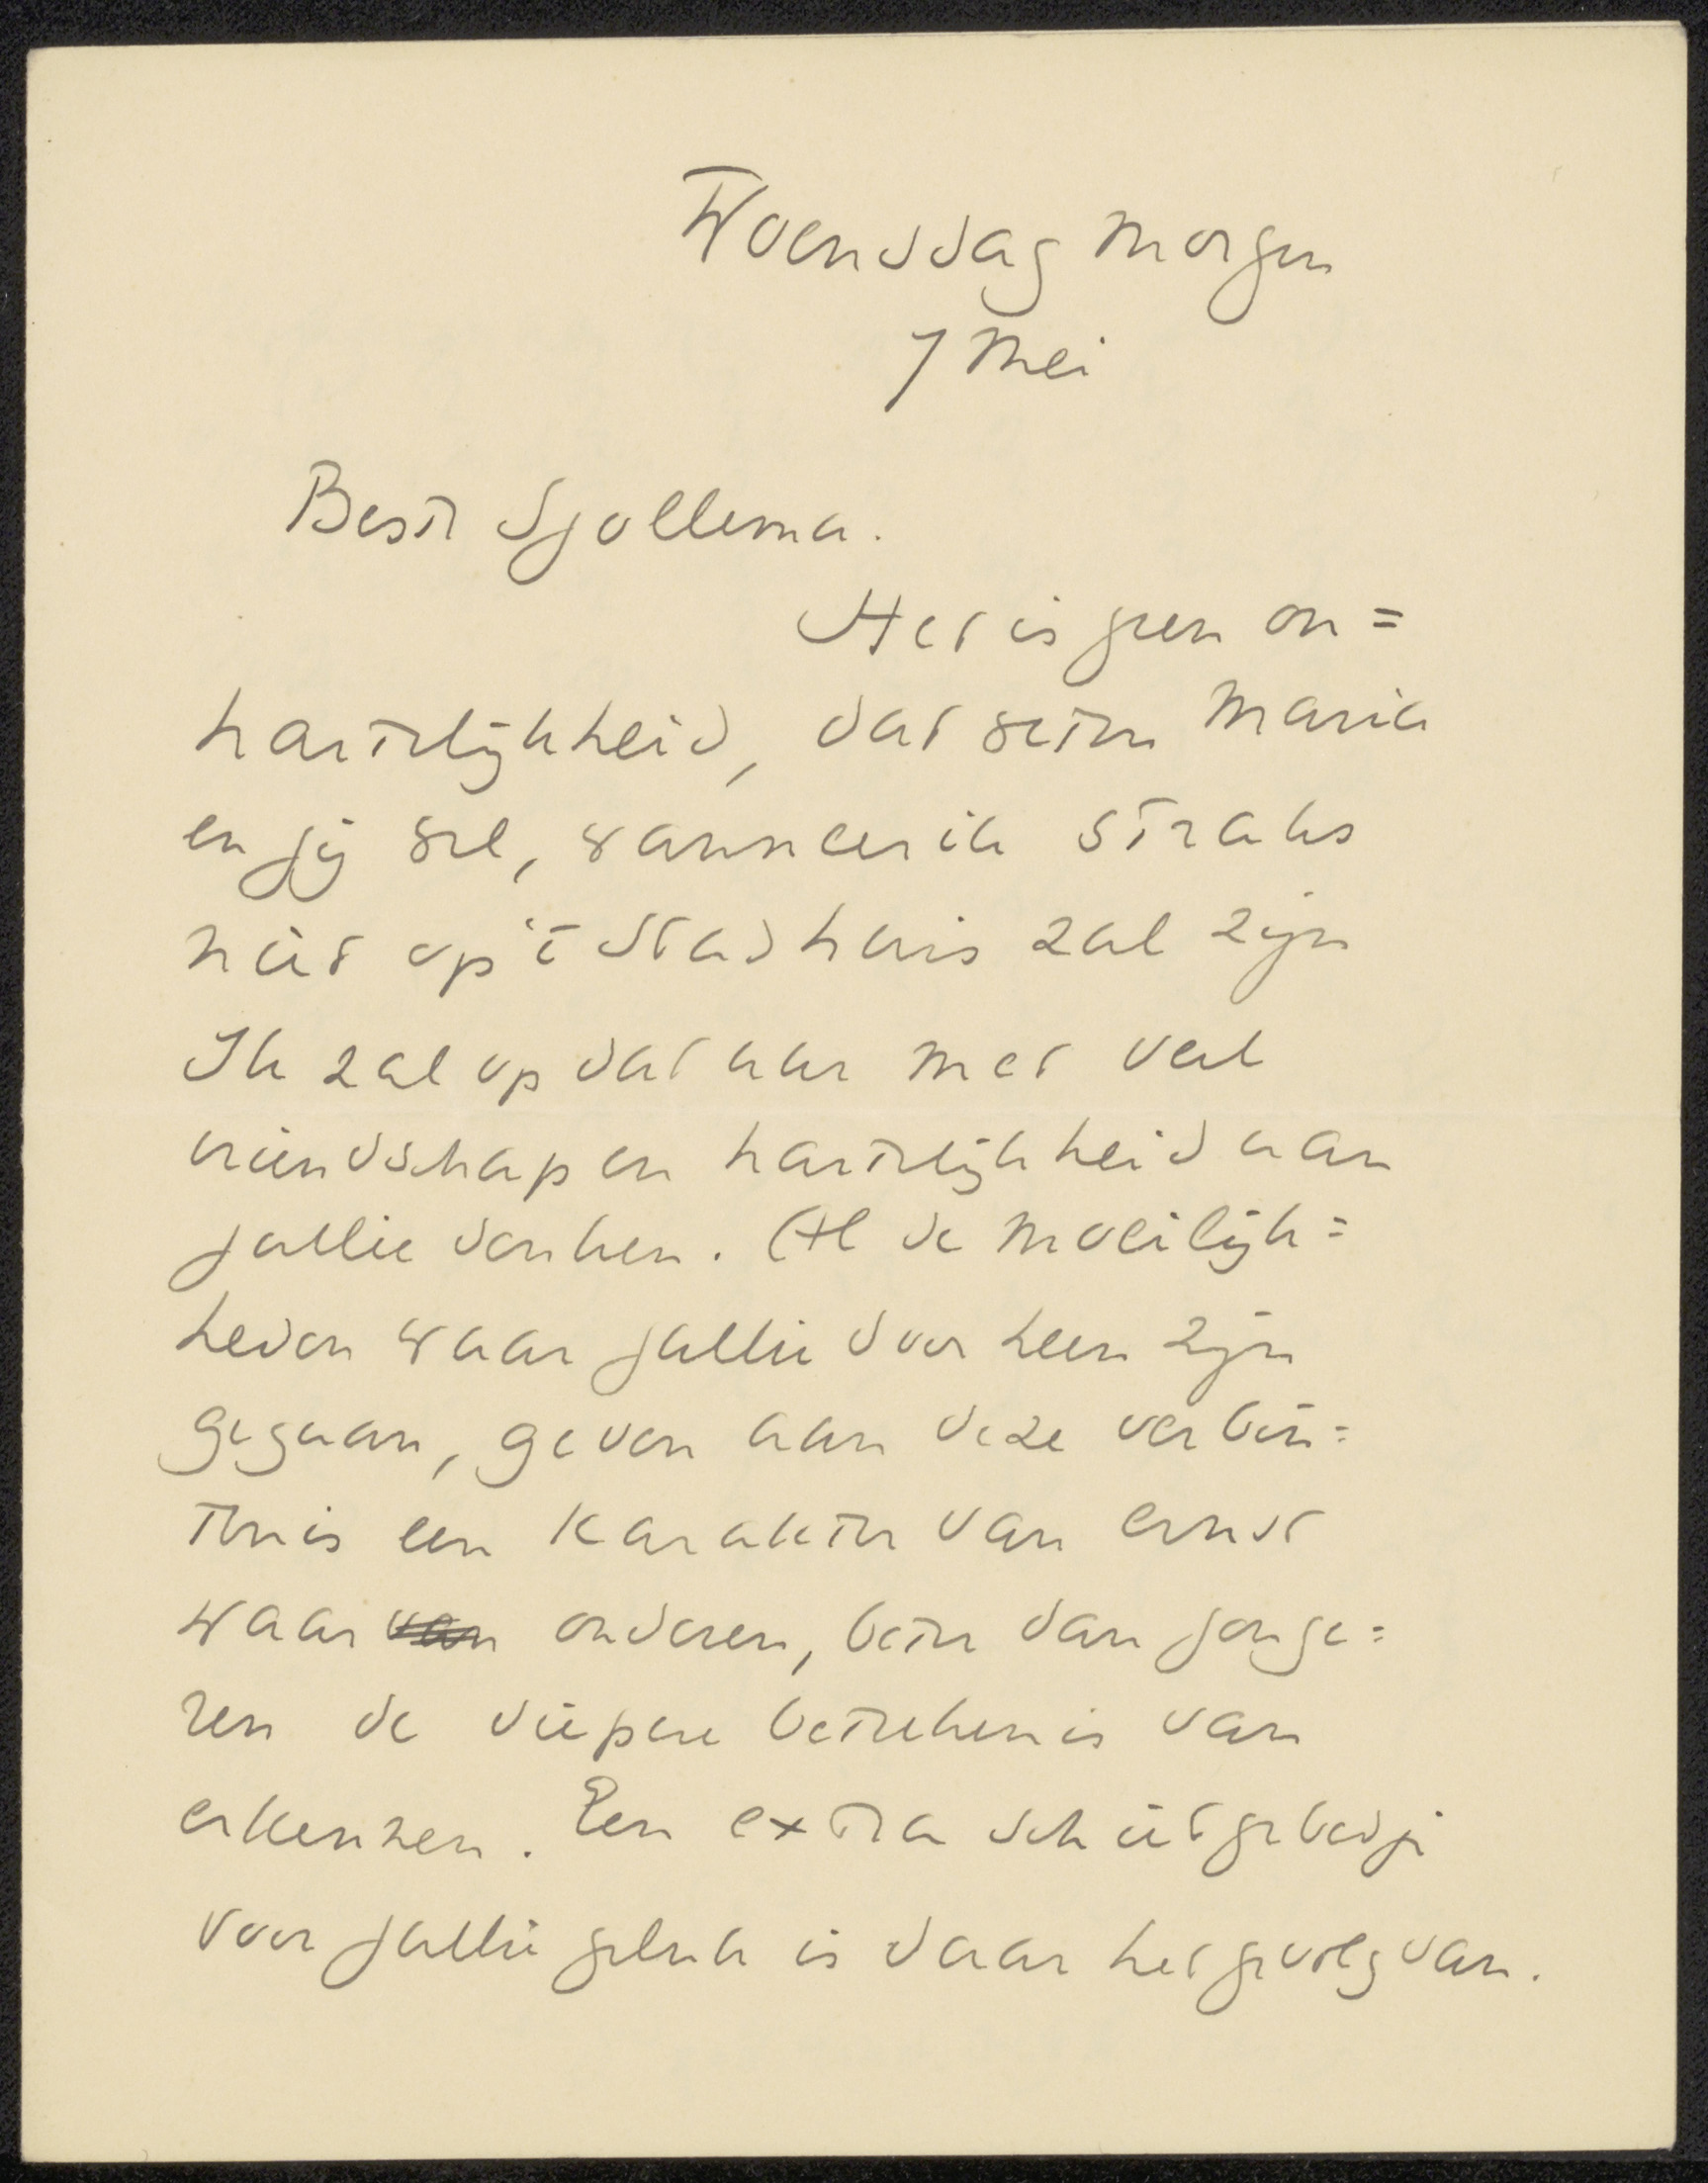 Woensdag morgen
7 Mei
Beste Sjollema.
Het is geen on=
hartelijkheid, dat weten Maria
en jij wel, wanneer ik straks
niet op 't Stadhuis zal zijn
Ik zal op dat uur met veel
vriendschap en hartelijkheid aan
jullie denken. Al de moeilijk=
heden waar jullie door heen zijn
gegaan, geven aan deze verbin=
tenis een karakter van ernst
waar van ouderen, beter dan jonge=
ren de diepere beteekenis van
erkennen. Een extra schietgebedje
voor jullie geluk is daar het gevolg van.